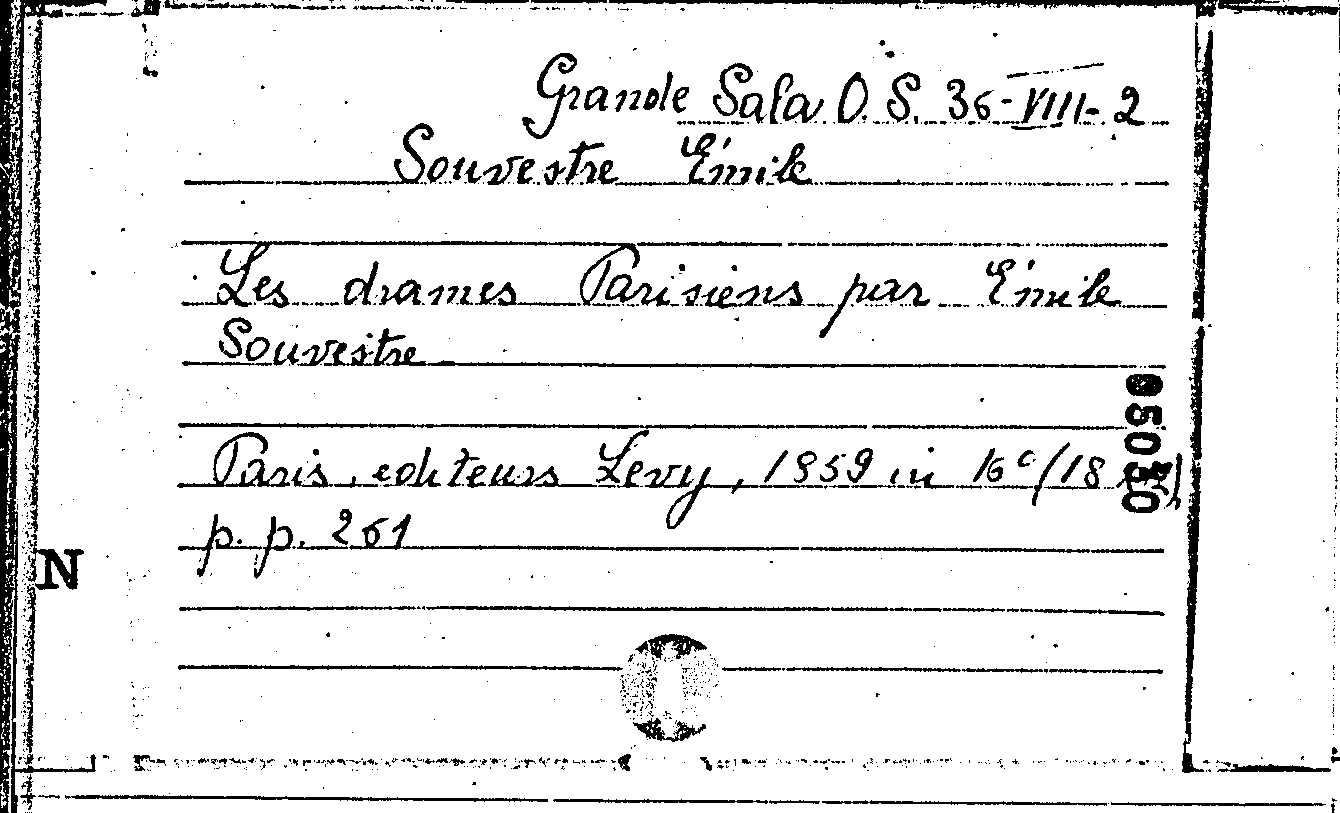 Grande Sala O. S. 36-VIII-2
Souvestre Émile
Les drames Parisiens par Émile
Souvestre
Paris, editeurs Levy, 1859 in 16°/18
p. p. 261
05030
N